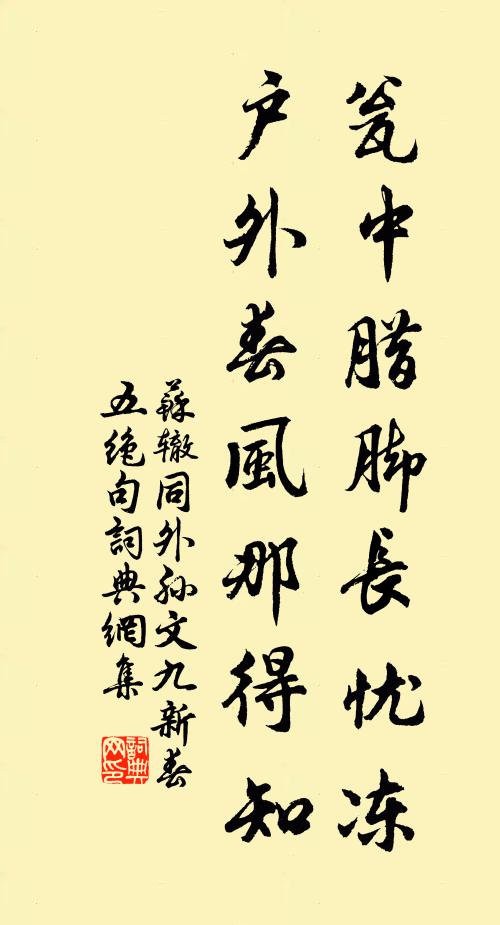 瓮中腊脚長忧冻
户外春風那得知
蘇辙同外孙文九新春
五绝句詞典網集
詞典
网印